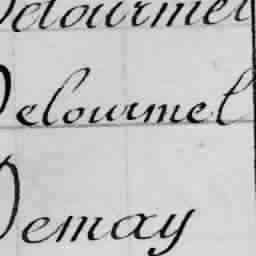 Delourmel
Delourmel
Demay